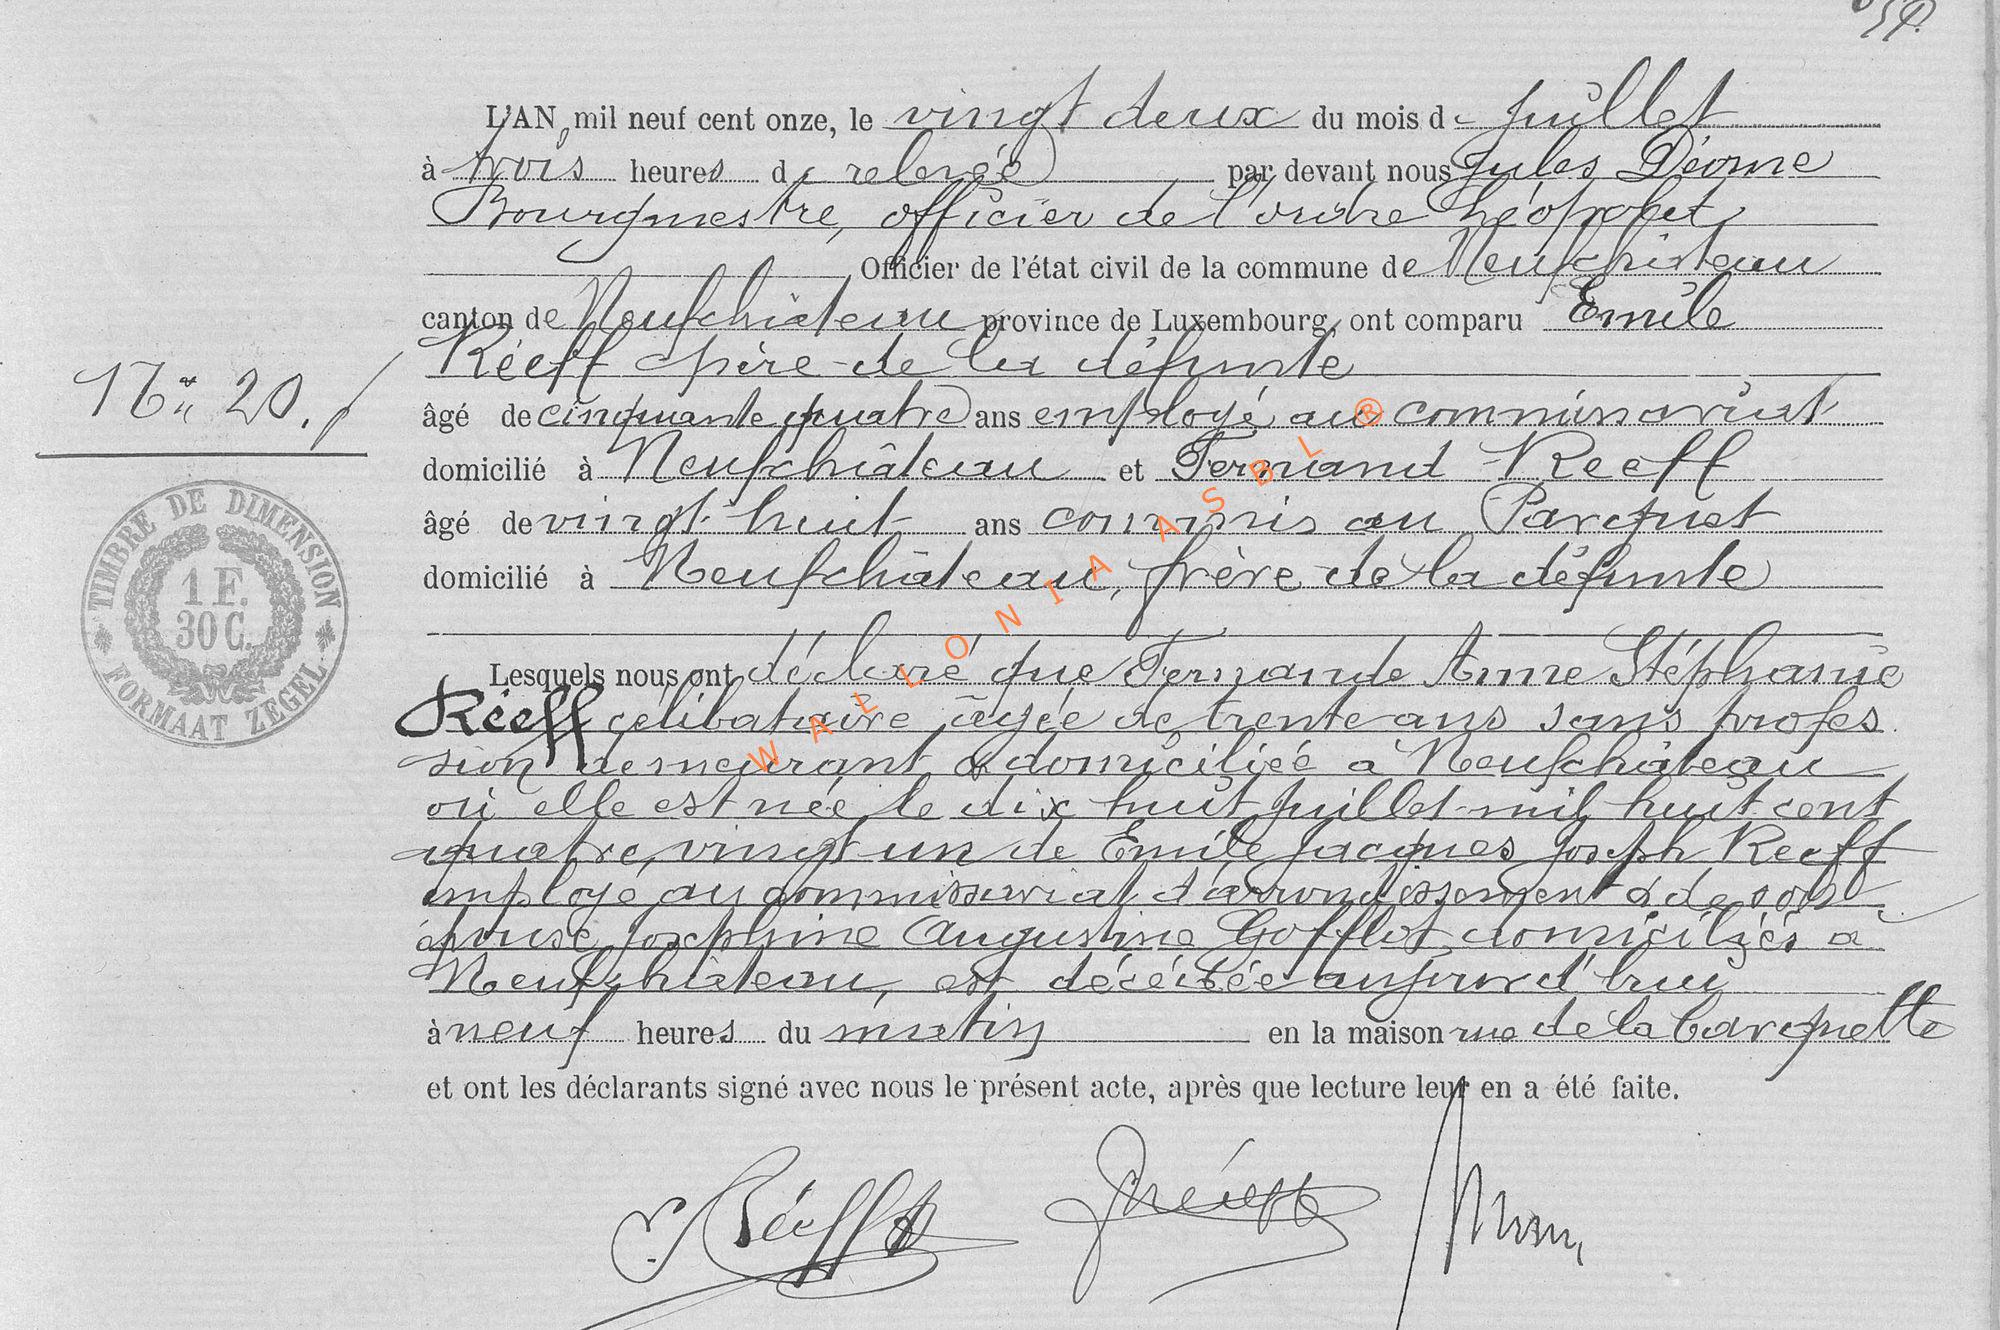 L'AN mil neuf cent onze, le vingt deux du mois de juillet
à trois heures de relevée par devant nous Jules
Bourgmestre, officier de l'ordre Léopold,
Officier de l'état civil de la commune de Neufchâteau
canton de Neufchâteau province de Luxembourg, ont comparu Emile
Réeff père de la défunte
N° 20.
âgé de cinquante quatre ans employé au commissariat
domicilié à Neufchâteau et Fernand Réeff
âgé de vingt huit ans commis au Parquet
domicilié à Neufchâteau, frère de la défunte
TIMBRE DE DIMENSION
1 F.
30 C.
FORMAAT ZEGEL
Lesquels nous ont déclaré que Fernande Anne Stéphanie
Réeff célibataire âgée de trente ans sans profes
sion demeurant & domiciliée à Neufchâteau
où elle est née le dix huit juillet mil huit cent
quatre vingt un de Emile Jacques Joseph Reeff
employé au commissariat d'arrondissement & de son
épouse Joséphine Augustine Gofflot domiciliés à
Neufchâteau, est décédée aujourd'hui
à neuf heures du matin en la maison rue de la barquette
et ont les déclarants signé avec nous le présent acte, après que lecture leur en a été faite.
Réeff
WALLONIA ASBL ®